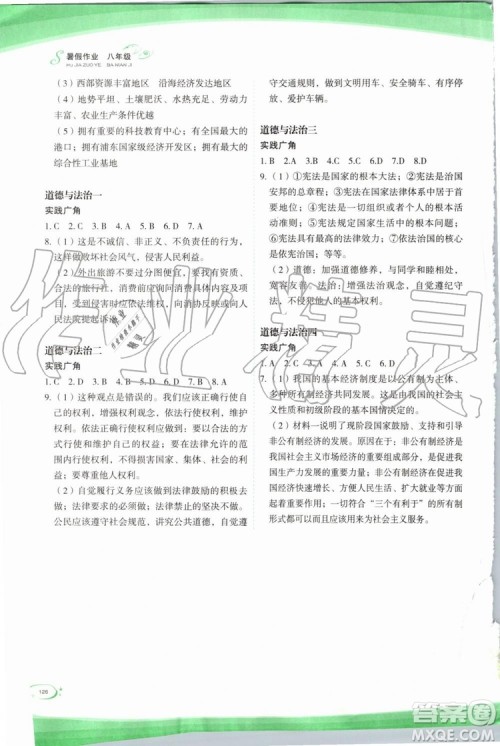 暑假作业 八年级
SHU JIA ZUO YE BA NIAN JI
（3）西部资源丰富地区 沿海经济发达地区
（4）地势平坦、土壤肥沃、水热充足、劳动力
丰富、农业生产条件优越
（5）拥有重要的科技教育中心；拥有最大的
港口；拥有浦东国家级经济开发区；拥有最大的
综合性工业基地
道德与法治一
实践广角
1. C 2. C 3. B 4. A 5. B 6. D 7. A
8.（1）这是不诚信、非正义、没有责任感的行为，
败坏社会风气，侵害人民利益。
（2）外出旅游不要过分贪图便宜，选择正规
旅行社，签订合同，消费留存依据。
人民法院提起诉讼。
道德与法治二
实践广角
1. C 2. D 3. B 4. B 5. C 6. A 7. D 8. D
9.（1）这种观点是错误的。我们应该正确行使
权利、依法正确行使权利，要以合法的方
式行使权利和自由，要在法律允许的范围
内行使权利，不能超越行使权利的界限，不
能要尊重他人权利。
（2）自觉履行义务应该做到法律鼓励的积极
去做，法律要求的必须去做，法律禁止的坚决不做。
公民应该遵守社会规范，讲究公共道德，自觉遵
守交通规则，做到不闯红灯、文明行车、安全行
车、爱护车辆。
道德与法治三
实践广角
1. B 2. A 3. C 4. C 5. D 6. D 7. A 8. D
9.（1）①宪法是国家的根本大法；②宪法是治国
安邦的总章程；③宪法在国家法律体系中居于
最高地位；④宪法是一切组织和个人的根本
活动准则；⑤宪法规定国家生活中的根本问题，
宪法具有最高的法律效力；⑥依法治国的核
心是依宪治国；等等。
（2）道德：加强道德修养，与同学和睦相处，
宽容友善。法律：增强法治观念，自觉遵纪守
法，不侵犯他人的基本权利。
道德与法治四
实践广角
1. C 2. C 3. B 4. D 5. C 6. D 7. D 8. B
9.（1）我国的基本经济制度是由我国的社会主
义性质和初级阶段的基本国情决定的。
（2）材料一说明了现阶段国家鼓励、支持和引导
非公有制经济的发展。原因在于：非公有制经济是
我国社会主义市场经济的重要组成部分，是促进我
国生产力发展的重要力量；非公有制经济对
我国经济快速增长、扩大就业等方面都发挥了
重要作用；一切符合“三个有利于”的所有
制形式都可以而且应该用来为社会主义服务。
126
作业精灵
答案圈
MXQE.COM